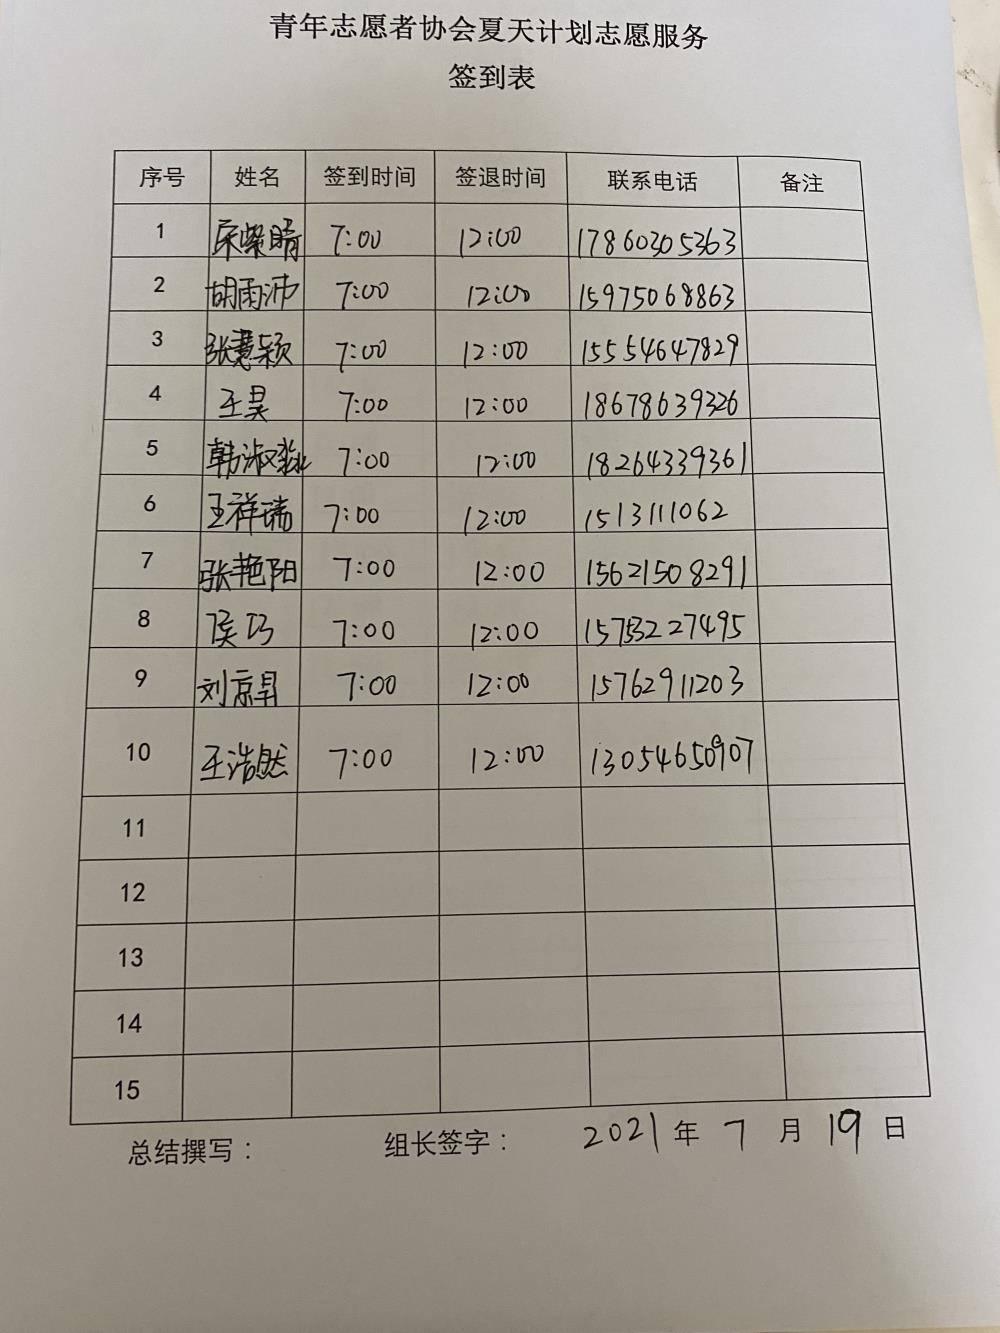 青年志愿者协会夏天计划志愿服务
签到表
序号 姓名 签到时间 签退时间 联系电话 备注
1 宋紫晴 7:00 12:00 17860305363
2 胡雨沛 7:00 12:00 15975068863
3 张慧颖 7:00 12:00 15554647829
4 王昊 7:00 12:00 18678639326
5 韩淑淼 7:00 12:00 18264339361
6 王祥瑞 7:00 12:00 1513111062
7 张艳阳 7:00 12:00 15621508291
8 侯巧 7:00 12:00 15753227495
9 刘京昊 7:00 12:00 15762911203
10 王浩然 7:00 12:00 13054650907
11
12
13
14
15
总结撰写： 组长签字： 2021年 7 月 19 日